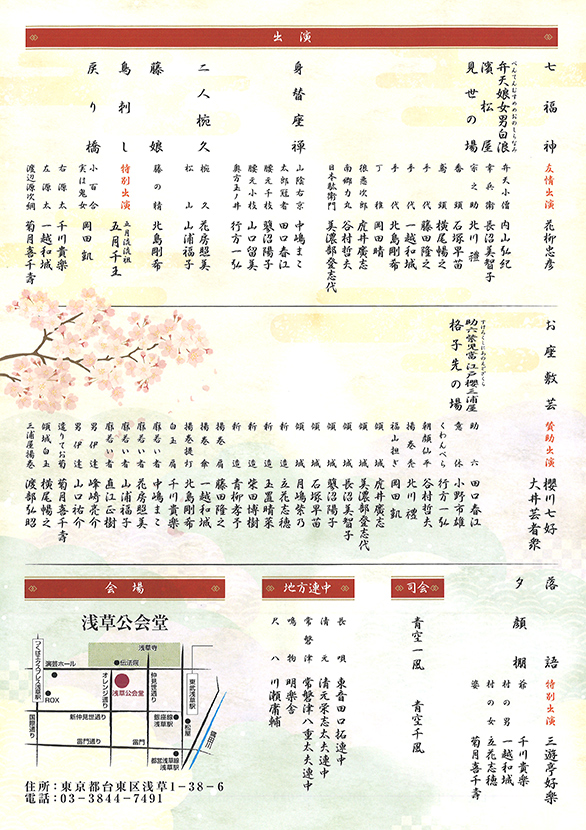 出演
七福神
友情出演 花柳忠彦
べんてんむすめめおのしらなみ
弁天娘女男白浪
濱松屋
見世の場
弁天小僧 内山弘紀
幸兵衛 長沼美智子
宗之助 北川禮
番頭 石塚早苗
鳶頭 横尾暢之
手代 藤田隆之
手代 一越和城
手代 北島剛希
丁稚 岡田晴
狼悪次郎 虎井廣志
南郷力丸 谷村哲夫
日本駄衛門 美濃部登志代
身替座禅
山蔭右京 中嶋まこ
太郎冠者 田口春江
腰元千枝 籏沼陽子
腰元小枝 山口留美
奥方玉ノ井 行方一弘
二人椀久
椀久 花房照美
松山 山浦福子
藤娘
藤の精 北島剛希
鳥刺し
特別出演 五月流流祖 五月千王
戻り橋
小百合 実は鬼女 岡田凱
右源太 千川貴楽
左源太 一越和城
渡辺源次綱 菊月喜千壽
お座敷芸
賛助出演 櫻川七好
大井芸者衆
すけろくくるわのえどざくら
助六 江戸櫻三浦屋
格子先の場
助六 田口春江
意休 小野市雄
くわんぺら 行方一弘
朝顔仙平 谷村哲夫
揚巻売 北川禮
福山担ぎ 岡田凱
傾城 虎井廣志
傾城 美濃部登志代
傾城 長沼美智子
傾城 籏沼陽子
傾城 石塚早苗
傾城 月嶋紫乃
新造 立花志穂
新造 玉置晴菜
新造 柴田博樹
新造 青柳孝予
揚巻肩 藤田隆之
揚巻傘 一越和城
揚巻提灯 北島剛希
白玉肩 千川貴樂
麻若い者 中嶋まこ
麻若い者 花房照美
麻若い者 山浦福子
麻若い者 直江正樹
男伊達 峰崎亮介
男伊達 山口祐介
遣りてお菊 菊月喜千壽
傾城白玉 横尾暢之
三浦屋揚巻 渡部弘昭
落語
特別出演 三遊亭好楽
夕顔棚
爺 千川貴楽
村の男 一越和城
村の女 立花志穂
婆 菊月喜千壽
司会
青空一風 青空千風
地方連中
長唄 東音田口拓連中
清元 清元栄志太夫連中
常磐津 常磐津八重太夫連中
鳴物 明樂舎
尺八 川瀬庸輔
会場
浅草公会堂
つくばエクスプレス浅草駅
演芸ホール
ROX
国際通り
浅草寺
伝法院
オレンジ通り
浅草公会堂
仲見世通り
新仲見世通り
雷門通り
雷門
銀座線浅草駅
都営浅草線浅草駅
東武浅草駅
松屋
隅田川
住所：東京都台東区浅草1-38-6
電話：03-3844-7491